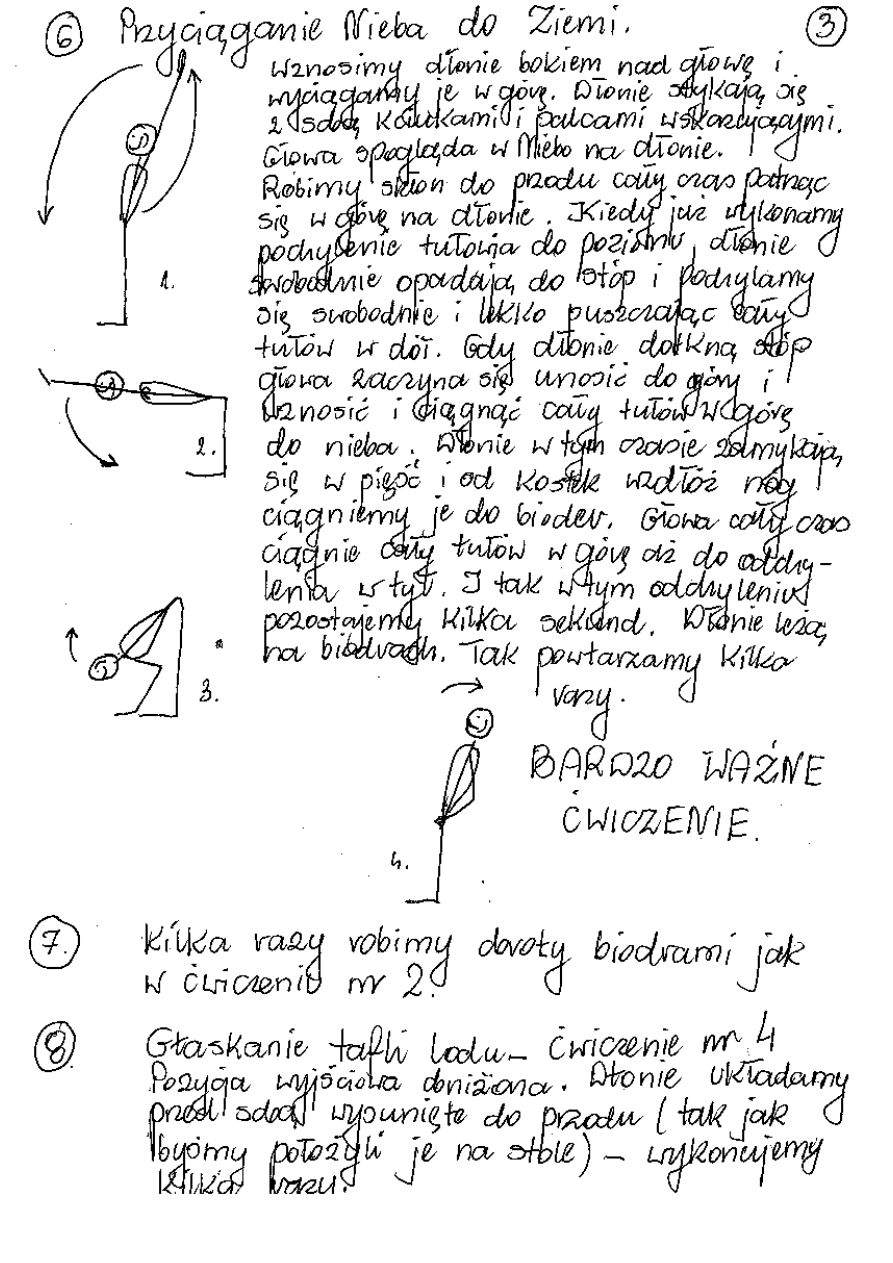 6 Przyciąganie Nieba do Ziemi. 3
Wznosimy dłonie bokiem nad głowę i
wyciągamy je w górę. Dłonie stykają się
z sobą kciukami i palcami wskazującymi.
Głowa spogląda w Niebo na dłonie.
Robimy skłon do przodu cały czas patrząc
się w górę na dłonie. Kiedy już wykonamy
pochylenie tułowia do poziomu, dłonie
swobodnie opadają do stóp i pochylamy
1.
się swobodnie i lekko puszczając cały
tułów w dół. Gdy dłonie dotkną stóp
głowa zaczyna się unosić do góry i
wznosić i ciągnąć cały tułów w górę
do nieba. Dłonie w tym czasie zamykają
2.
się w pięść i od kostek wzdłóż nóg
ciągniemy je do bioder. Głowa cały czas
ciągnie cały tułów w górę aż do odchy-
lenia w tył. I tak w tym odchyleniu
pozostajemy kilka sekund. Dłonie leżą
na biodrach. Tak powtarzamy kilka
3.
razy.
BARDZO WAŻNE
ĆWICZENIE.
4.
7. Kilka razy robimy obroty biodrami jak
w ćwiczeniu nr 2.
8. Głaskanie tafli lodu - ćwiczenie nr 4
Pozycja wyjściowa obniżona. Dłonie układamy
przed sobą wysunięte do przodu (tak jak
byśmy położyli je na stole) - wykonujemy
kilka razy.